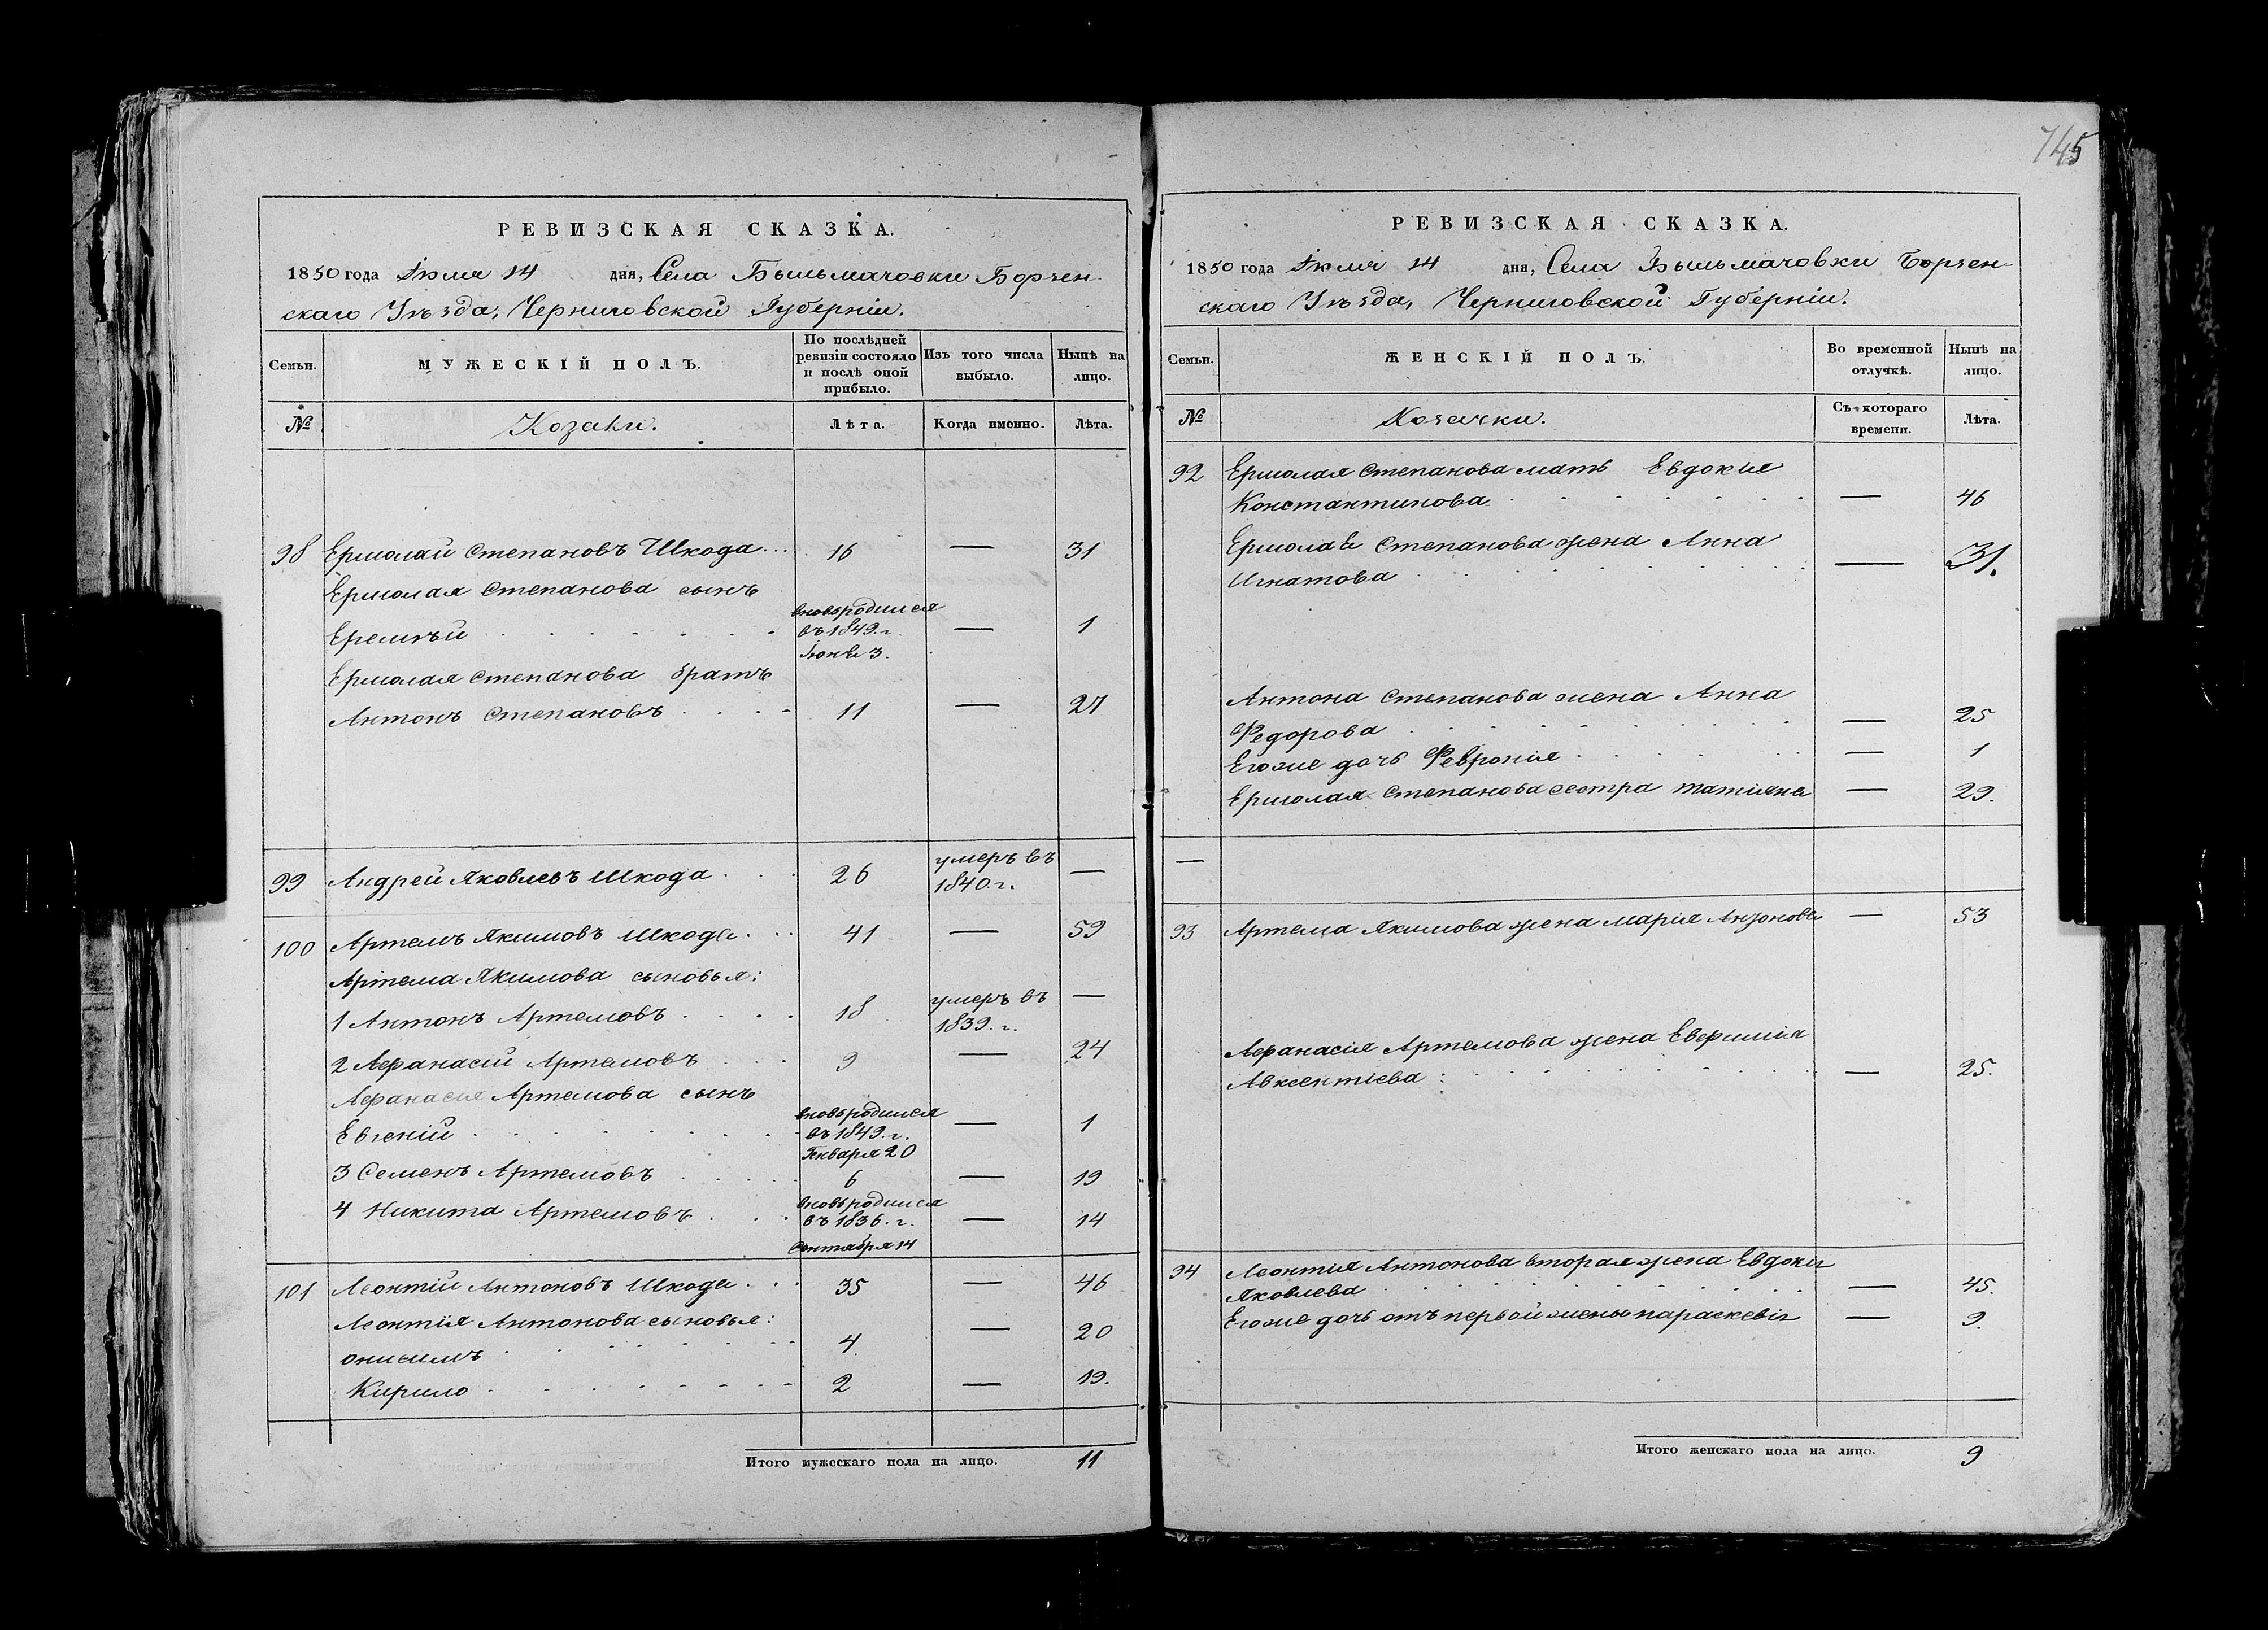 745
РЕВИЗСКАЯ СКАЗКА.
1850 года Іюля 14 дня, Села Бышьмачовки Борзен-
скаго Уѣзда, Черниговской Губерніи.
Семьи. МУЖЕСКІЙ ПОЛЪ. По послѣдней ревизіи состояло и послѣ оной прибыло. Изъ того числа выбыло. Нынѣ на лицо.
№ Козаки. Лѣта. Когда именно. Лѣта.
98 Ермолай Степановъ Шкода... 16 — 31
Ермолая Степанова сынъ
Еремѣй вновьродился въ 1849.г. Іюня 3. — 1
Ермолая Степанова братъ
Антонъ Степановъ 11 — 27
99 Андрей Яковлевъ Шкода 26 умеръ въ 1840.г. —
100 Артемъ Якимовъ Шкода 41 — 59
Артема Якимова сыновья:
1 Антонъ Артемовъ 18 умеръ въ 1839.г. —
2 Афанасій Артемовъ 9 — 24
Афанасія Артемова сынъ
Евгеній вновьродился въ 1849.г. Января 20 — 1
3 Семенъ Артемовъ 6 — 19
4 Никита Артемовъ вновьродился въ 1836.г. Сентября 14 — 14
101 Леонтій Антоновъ Шкода 35 — 46
Леонтія Антонова сыновья:
Онисимъ 4. — 20
Кирило 2 — 19.
Итого мужескаго пола на лицо. 11
РЕВИЗСКАЯ СКАЗКА.
1850 года Іюля 14 дня, Села Бышьмачовки Борзен-
скаго Уѣзда, Черниговской Губерніи.
Семьи. ЖЕНСКІЙ ПОЛЪ. Во временной отлучкѣ. Нынѣ на лицо.
№ Козачки. Съ котораго времени. Лѣта.
92 Ермолая Степанова мать Евдокия
Константинова — 46
Ермолая Степанова жена Анна
Игнатова — 31.
Антона Степанова жена Анна
Федорова — 25
Егоже дочь Февронія — 1
Ермолая Степанова сестра Татіяна — 29.
—
93 Артема Якимова жена Марія — 53
Афанасія Артемова жена Евфимія
Авксентіева: — 25.
94 Леонтія Антонова вторая жена
Яковлева — 45.
Егоже дочь отъ первой жены — 9.
Итого женскаго пола на лицо. 9